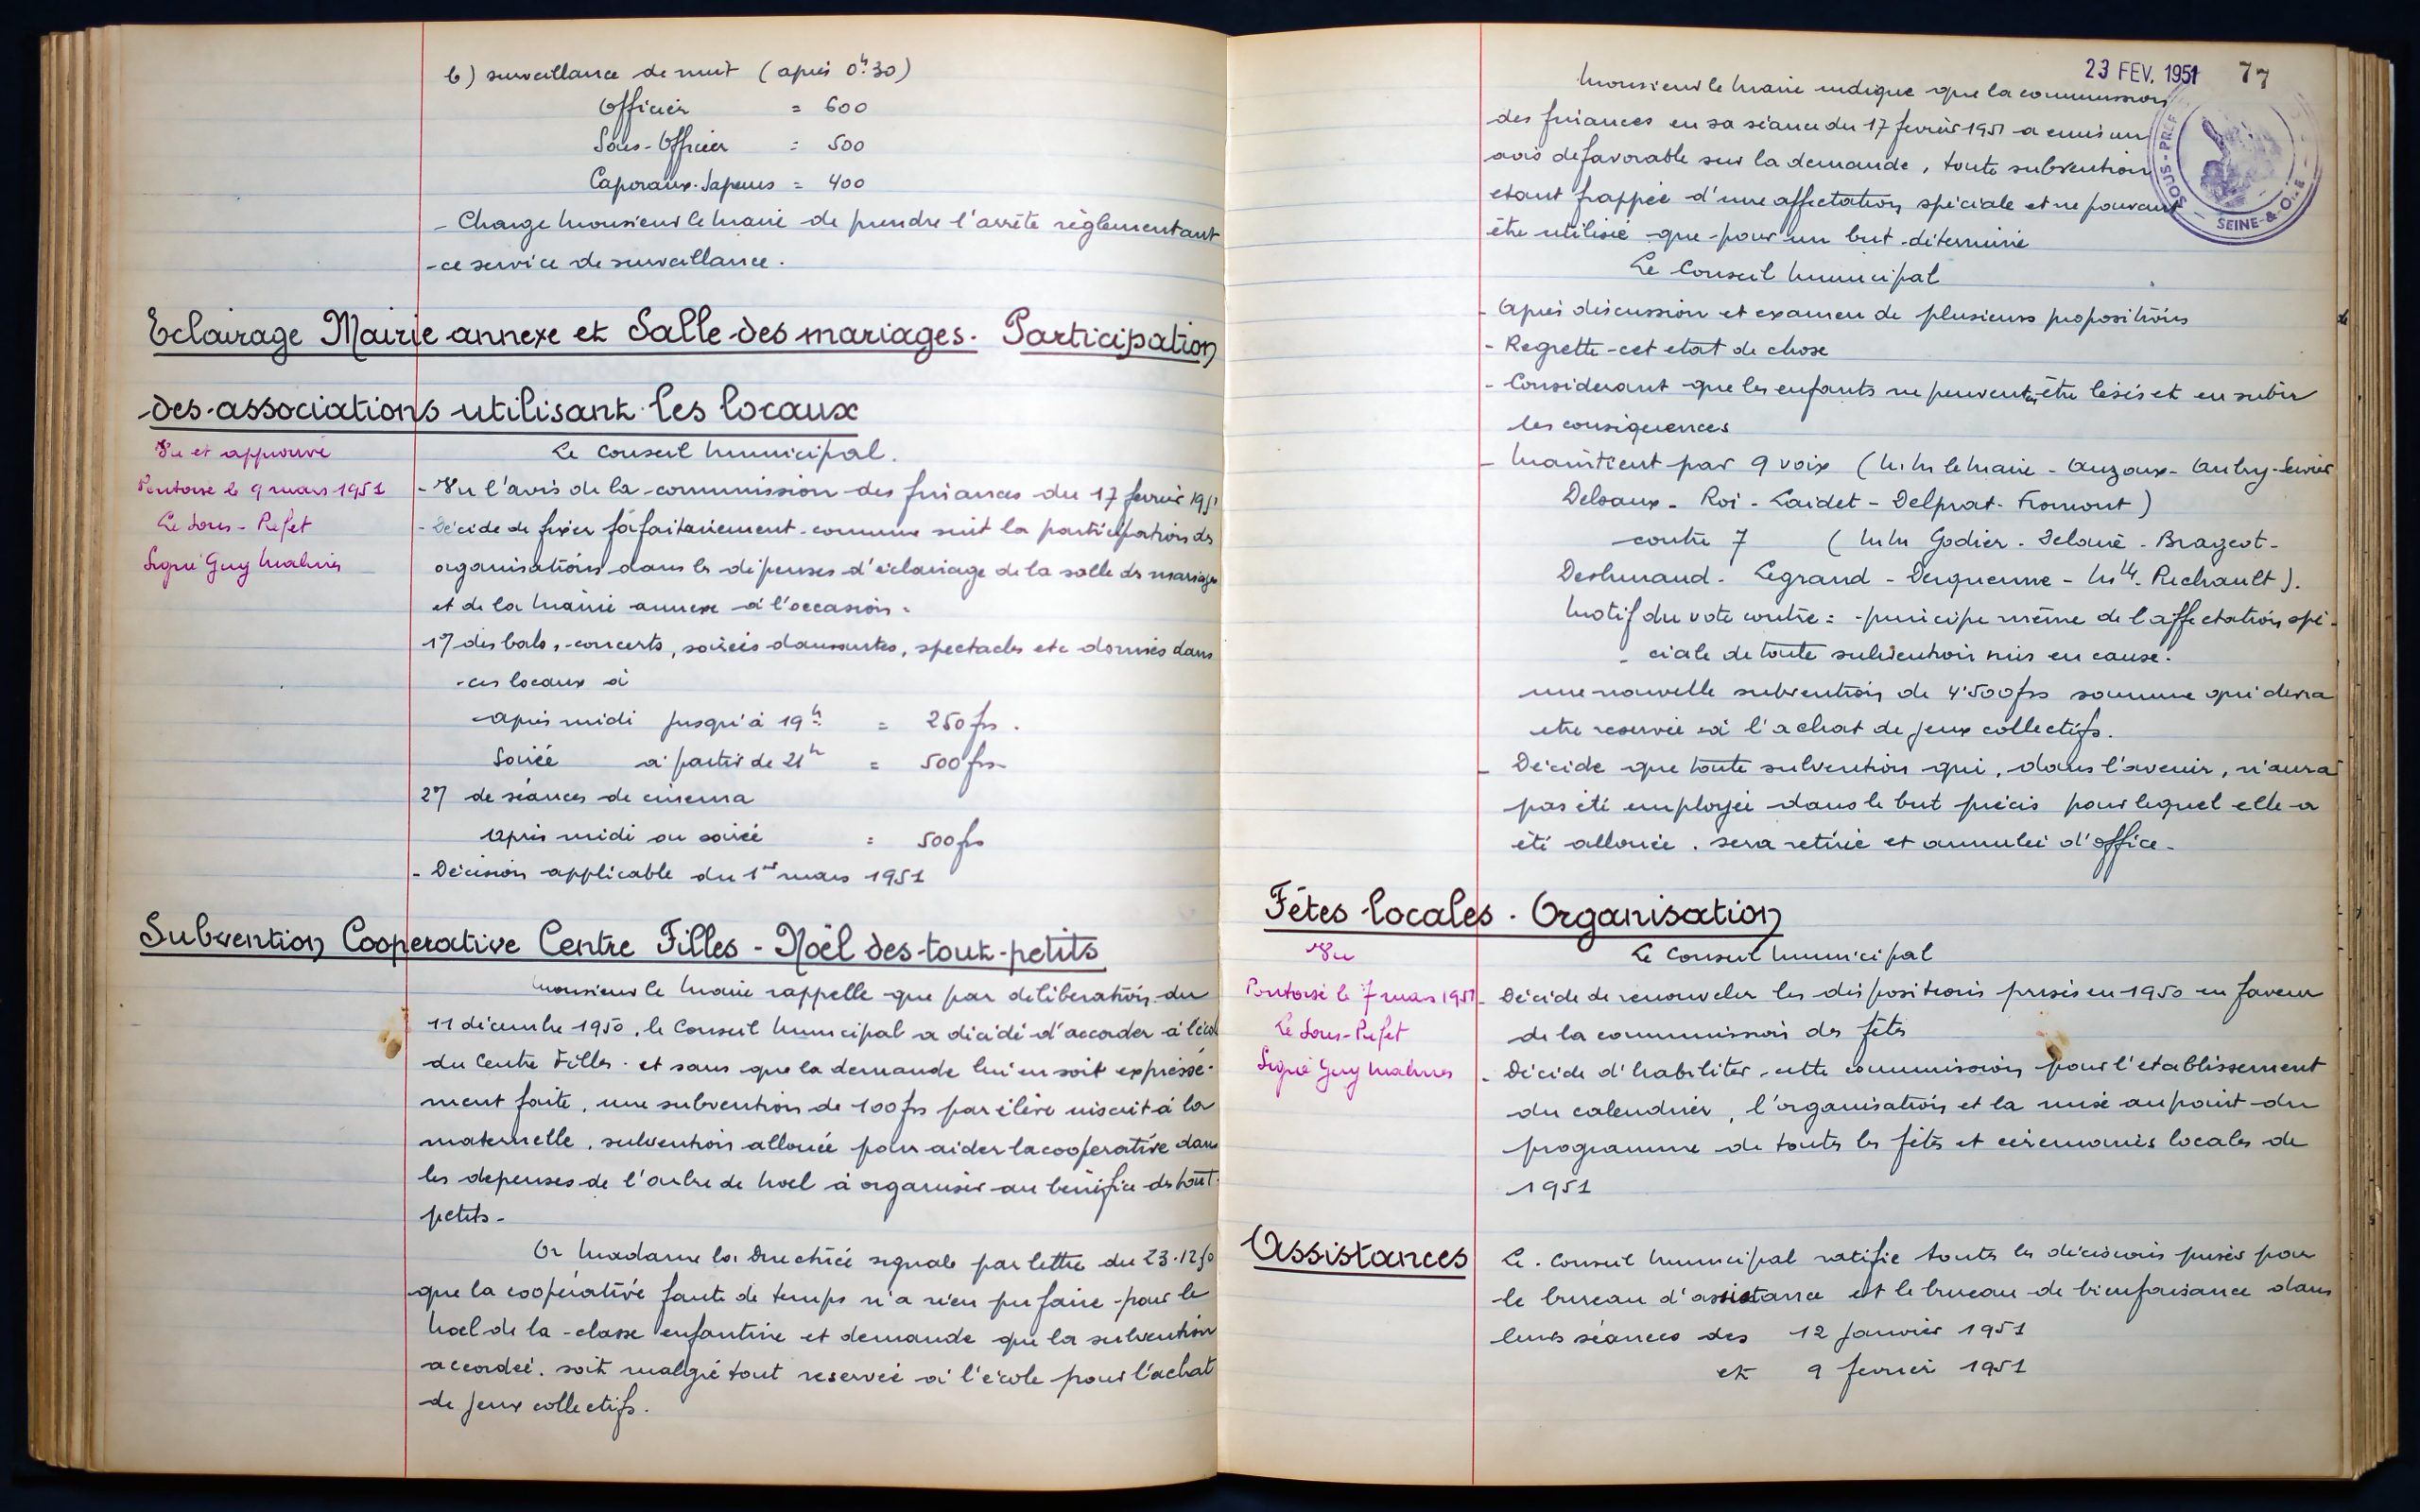 b) surveillance de nuit (après 0h30)
Officier = 600
Sous-Officier = 500
Caporaux-Sapeurs = 400
- Charge Monsieur le Maire de prendre l'arrêté règlementant
- ce service de surveillance.
Eclairage Mairie annexe et Salle des mariages. Participation
des associations utilisant les locaux
Vu et approuvé
Pontoise le 9 mars 1951
Le Sous-Préfet
Signé Guy
Le Conseil Municipal.
- Vu l'avis de la commission des finances du 17 fevrier 1951
- Décide de fixer forfaitairement comme suit la participation des
organisations dans les dépenses d'éclairage de la salle des mariages
et de la Mairie annexe à l'occasion.
1°) des bals, concerts, soirées dansantes, spectacles etc donnés dans
ces locaux à
après midi jusqu'à 19h = 250 frs.
Soirée à partir de 21h = 500 frs
2°) de séances de cinema
après midi ou soirée = 500 frs
- Décision applicable du 1er mars 1951
Subvention Cooperative Centre Filles - Noël des tout-petits
Monsieur le Maire rappelle que par deliberation du
11 décembre 1950, le Conseil Municipal a décidé d'accorder à l'école
du Centre Filles. et sans que la demande lui en soit expressé-
ment faite, une subvention de 100 frs par élève inscrit à la
maternelle, subvention allouée pour aider la cooperative dans
les depenses de l'arbre de Noel à organiser au bénéfice des tout-
petits-
Or Madame la Directrice signale par lettre du 23.12.50
que la coopérative faute de temps n'a rien pu faire pour le
Noel de la classe enfantine et demande que la subvention
accordée. soit malgré tout reservée à l'école pour l'achat
de jeux collectifs.
23 FEV. 1951 77
SOUS-PREF
SEINE-&-OISE
Monsieur le Maire indique que la commission
des finances en sa séance du 17 fevrier 1951 a émis un
avis défavorable sur la demande, toute subvention
etant frappée d'une affectation spéciale et ne pouvant
être utilisée que pour un but déterminé
Le Conseil Municipal
- Après discussion et examen de plusieurs propositions
- Regrette cet etat de chose
- Considerant que les enfants ne peuvent être lésés et en subir
les conséquences
- Maintient par 9 voix (M.M. le Maire - Auzoux - Aubry-
Delsaux - Roi - Laidet - Delprat - Fromont)
contre 7 (M.M. Godier - - Brageot -
- Legrand - Derquenne - Mlle. Pechault).
Motif du vote contre: principe même de l'affectation spé-
ciale de toute subvention mis en cause.
une nouvelle subvention de 4.500 frs somme qui devra
etre reservée à l'achat de jeux collectifs.
- Décide que toute subvention qui, dans l'avenir, n'aura
pas été employée dans le but précis pour lequel elle a
été allouée, sera retirée et annulée d'office.
Fêtes locales. Organisation
Vu
Pontoise le 7 mars 1951
Le Sous-Préfet
Signé Guy
Le Conseil Municipal
- Décide de renouveler les dispositions prises en 1950 en faveur
de la commission des fêtes
- Décide d'habiliter cette commission pour l'etablissement
du calendrier, l'organisation et la mise au point du
programme de toutes les fêtes et cérémonies locales de
1951
Assistances
Le Conseil Municipal ratifie toutes les décisions prises par
le bureau d'assistance et le bureau de bienfaisance dans
leurs séances des 12 Janvier 1951
et 9 fevrier 1951